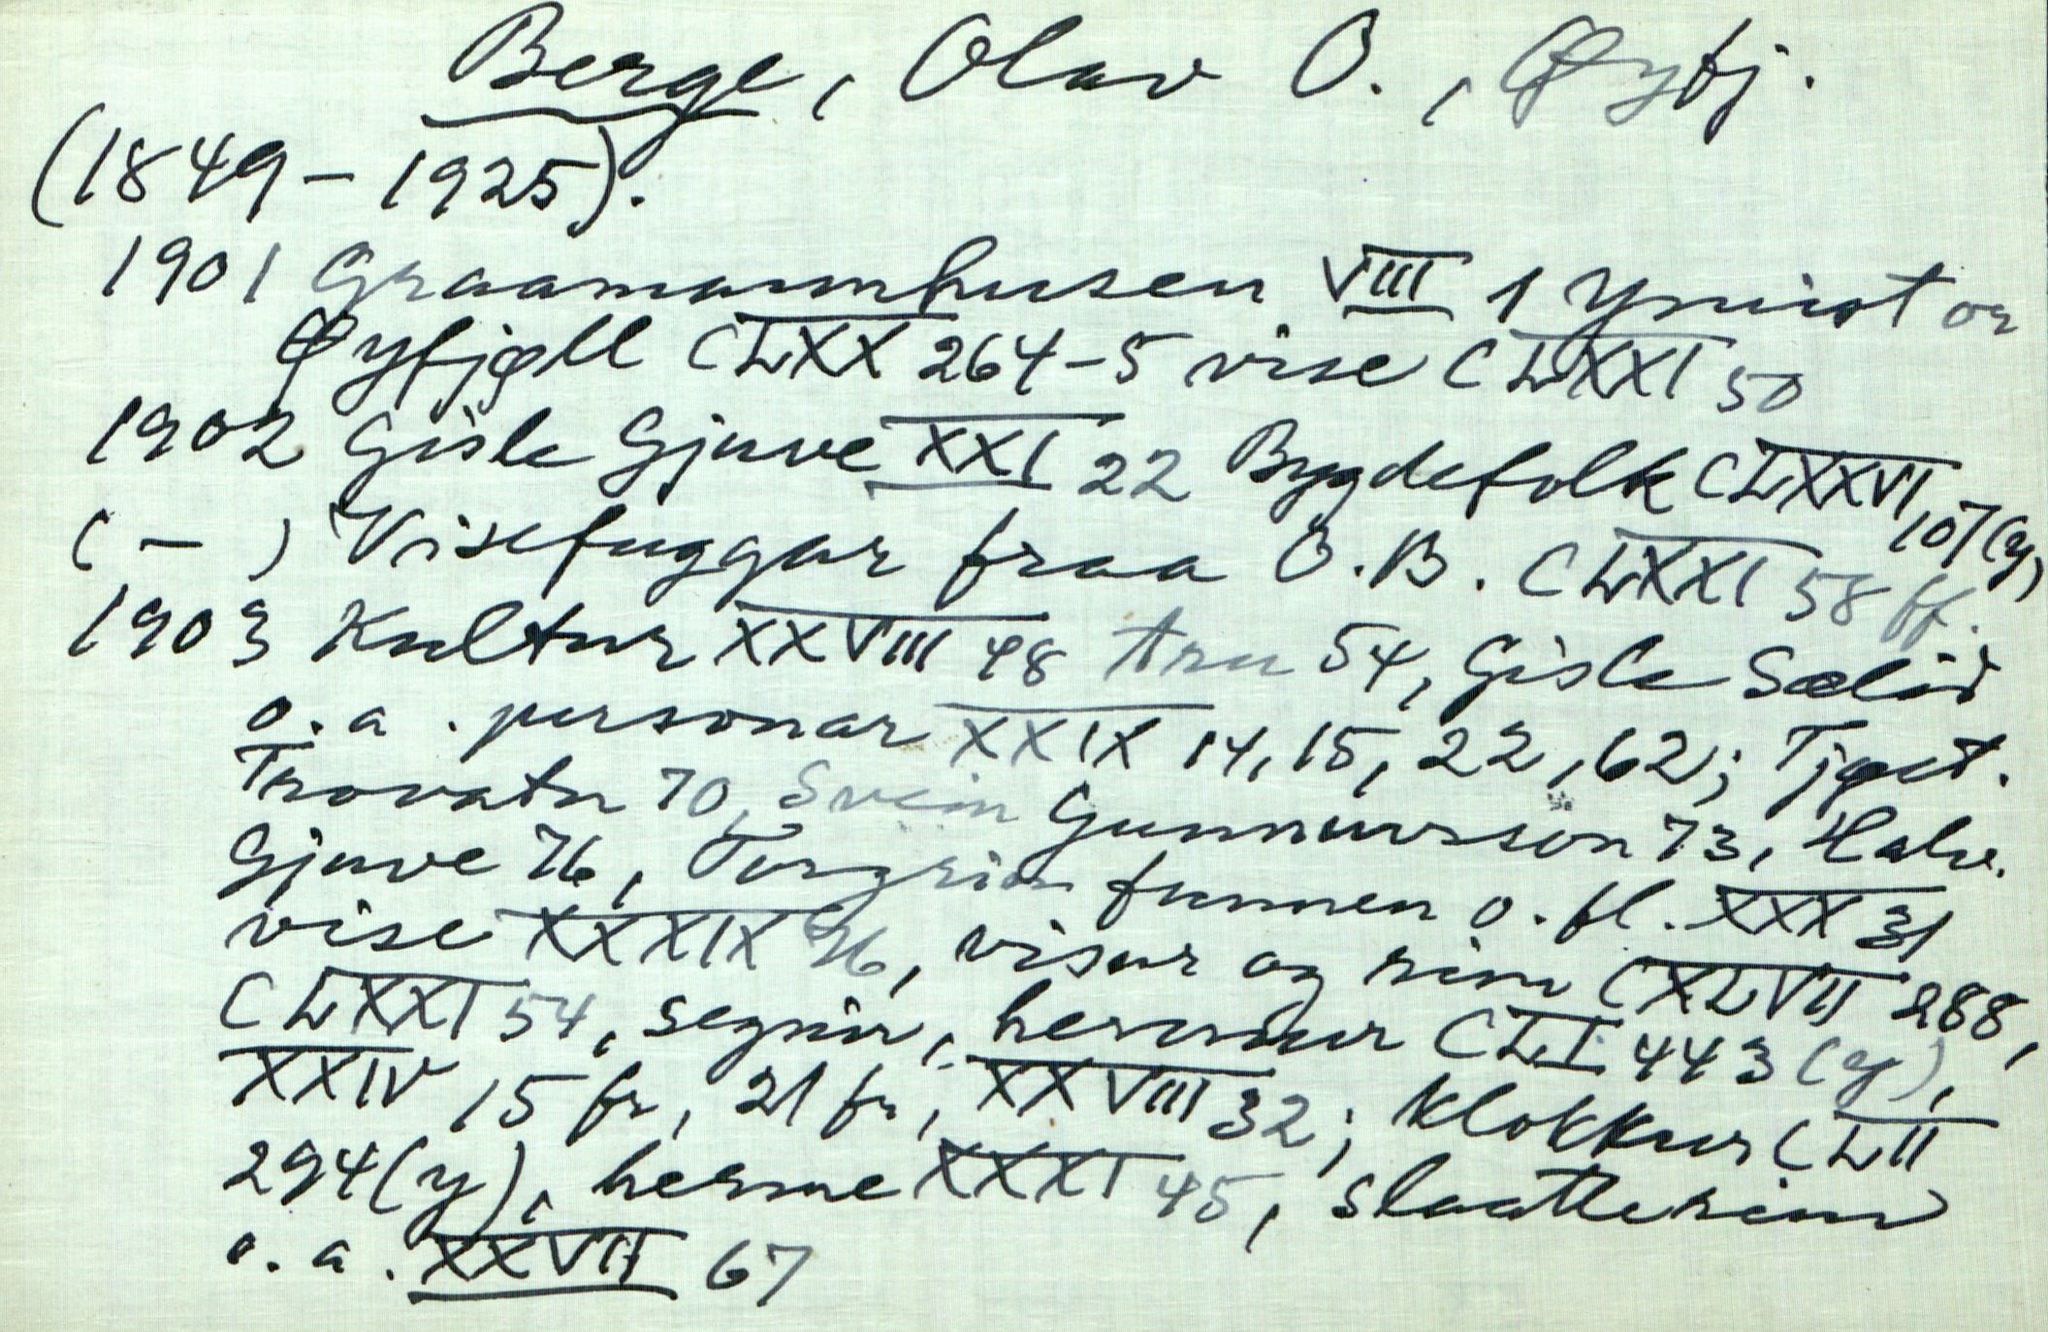 Berge, Olav O., Øyfj.
(1849-1925).
1901 Graamannhusen VIII 1 Ymist or
Øyfjøll CLXX 264-5 vise CLXXI 50
1902 Gisle Gjuve XXI 22 Bygdefolk CLXXVI 107(y)
( - ) Visefuggar fraa O.B. CLXXI 58 ff.
1903 Kultur XXVIII 48 tru 54, Gisle Sælid
o.a. personar XXIX 14, 15, 22, 62; Tjøst.
Trovatn 70, Svein Gunnuvsson 73, Halv.
Gjuve 76, Torgrim funnen o.fl. XXX 31
vise XXXIX 76, visur og rim CXLVII 288,
CLXXI 54, segnir, hermur CLI 443 (y),
XXIV 15 fr, 21 fr, XXVIII 32; klokkur CLII
294(y), herme XXXI 45, slaatterim
o.a. XXVII 67